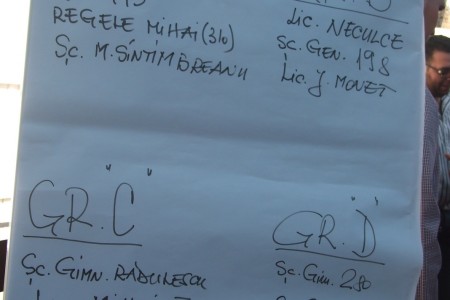 REGELE MIHAI (310)
ȘC. M. SÎNTIMBREANU
LIC. NECULCE
ȘC. GEN. 198
LIC. J. MONET
GR. "C"
ȘC. GIMN. RĂDULESCU
GR. "D"
ȘC. GIM. 280